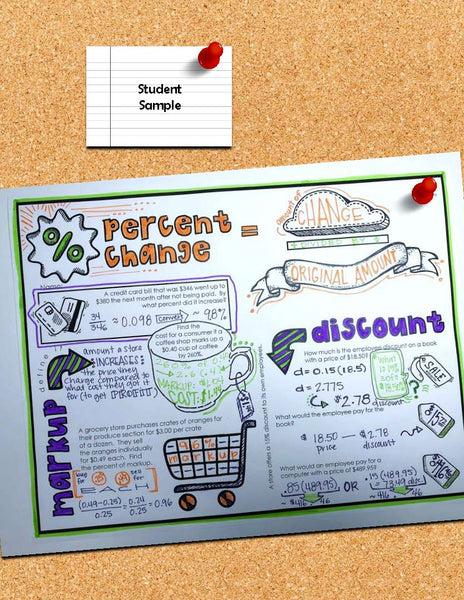 Student
Sample
%
percent
change
=
amount of
CHANGE
DIVIDED BY
ORIGINAL AMOUNT
Name:
A credit card bill that was $346 went up to
$380 the next month after not being paid. By
what percent did it increase?
34
346
≈ 0.098
convert
~ 9.8%
Find the
cost for a consumer if a
coffee shop marks up a
$0.40 cup of coffee
by 260%.
MARKUP: $1.04
COST:
markup
define
amount a store
INCREASES
the price they
charge compared to
what they got it
for (to get PROFIT!)
A grocery store purchases crates of oranges for
their produce section for $3.00 per crate
of a dozen. They sell
the oranges individually
for $0.49 each. Find
the percent of markup.
(0.49-0.25)
0.25
= 0.24
0.25
= 0.96
96%
markup
discount
A store offers a 15% discount to its own employees.
How much is the employee discount on a book
with a price of $18.50?
d = 0.15(18.5)
d = 2.775
$2.78
discount
SALE
What would the employee pay for the
book?
$18.50 — $2.78
price discount
What would an employee pay for a
computer with a price of $489.95?
.85(489.95)
OR
.15(489.95)
= 73.49 disc.
~ $416.46
~ 416.46